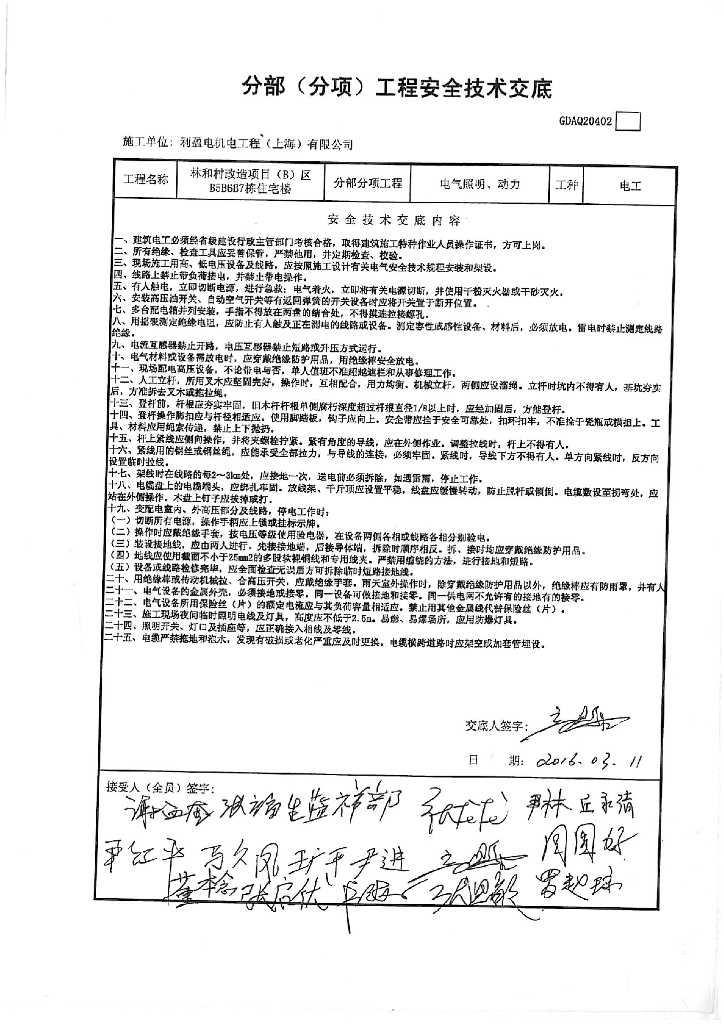 分部（分项）工程安全技术交底
GDAQ20402
施工单位：利盈电机电工程（上海）有限公司
工程名称 林和村改造项目（B）区 B5B6B7栋住宅楼 分部分项工程 电气照明、动力 工种 电工
安全技术交底内容
一、建筑电工必须经省级建设行政主管部门考核合格，取得建筑施工特种作业人员操作证书，方可上岗。
二、所有绝缘、检查工具应妥善保管，严禁他用，并定期检查、校验。
三、现场施工用高、低电压设备及线路，应按照施工设计有关电气安全技术规程安装和架设。
四、线路上禁止带负荷接电，并禁止带电操作。
五、有人触电，立即切断电源，进行急救；电气着火，立即将有关电源切断，并使用干粉灭火器或干砂灭火。
六、安装高压油开关、自动空气开关等有返回弹簧的开关设备时应将开关置于断开位置。
七、多台配电箱并列安装，手指不得放在两盘的结合处，不得摸连接螺孔。
八、用摇表测定绝缘电阻，应防止有人触及正在测电的线路或设备。测定容性或感性设备、材料后，必须放电。雷电时禁止测定线路
绝缘。
九、电流互感器禁止开路，电压互感器禁止短路或升压方式运行。
十、电气材料或设备需放电时，应穿戴绝缘防护用品，用绝缘棒安全放电。
十一、现场配电高压设备，不论带电与否，单人值班不准超越遮栏和从事修理工作。
十二、人工立杆，所用叉木应坚固完好，操作时，互相配合，用力均衡。机械立杆，两侧应设溜绳。立杆时坑内不得有人，基坑夯实
后，方准拆去叉木或拖拉绳。
十三、登杆前，杆根应夯实牢固，旧木杆杆根单侧腐朽深度超过杆根直径1/8以上时，应经加固后，方能登杆。
十四、登杆操作脚扣应与杆径相适应。使用脚踏板，钩子应向上。安全带应拴于安全可靠处，扣环扣牢，不准拴于瓷瓶或横担上。工
具、材料应用绳索传递，禁止上下抛扔。
十五、杆上紧线应侧向操作，并将夹螺栓拧紧。紧有角度的导线，应在外侧作业。调整拉线时，杆上不得有人。
十六、紧线用的铝丝或钢丝绳，应能承受全部拉力，与导线的连接，必须牢固。紧线时，导线下方不得有人。单方向紧线时，反方向
设置临时拉线。
十七、架线时在线路的每2～3km处，应接地一次，送电前必须拆除，如遇雷雨，停止工作。
十八、电缆盘上的电缆端头，应绑扎牢固。放线架、千斤顶应设置平稳，线盘应缓慢转动，防止脱杆或倾倒。电缆敷设至拐弯处，应
站在外侧操作。木盘上钉子应拔掉或打。
十九、变配电室内、外高压部分及线路，停电工作时：
（一）切断所有电源，操作手柄应上锁或挂标示牌。
（二）操作时应戴绝缘手套，按电压等级使用验电器，在设备两侧各相或线路各相分别验电。
（三）装设接地线，应由两人进行，先接接地端，后接导体端，拆除时顺序相反。拆、接时均应穿戴绝缘防护用品。
（四）地线应使用截面不小于25mm2的多股软裸铜线和专用线夹。严禁用缠绕的方法，进行接地和短路。
（五）设备或线路检修完毕，应全面检查无误后方可拆除临时短路接地线。
二十、用绝缘棒或传动机械拉、合高压开关，应戴绝缘手套。雨天室外操作时，除穿戴绝缘防护用品以外，绝缘棒应有防雨罩，并有人
二十一、电气设备的金属外壳，必须接地或接零。同一设备可做接地和接零。同一供电网不允许有的接地有的接零。
二十二、电气设备所用保险丝（片）的额定电流应与其负荷容量相适应。禁止用其他金属线代替保险丝（片）。
二十三、施工现场夜间临时照明电线及灯具，高度应不低于2.5m。易燃、易爆场所，应用防爆灯具。
二十四、照明开关、灯口及插座等，应正确接入相线及零线。
二十五、电缆严禁拖地和泡水，发现有破损或老化严重应及时更换。电缆横跨道路时应架空或加套管埋设。
交底人签字：
日 期：2016.03.11
接受人（全员）签字：
尹林
尹进